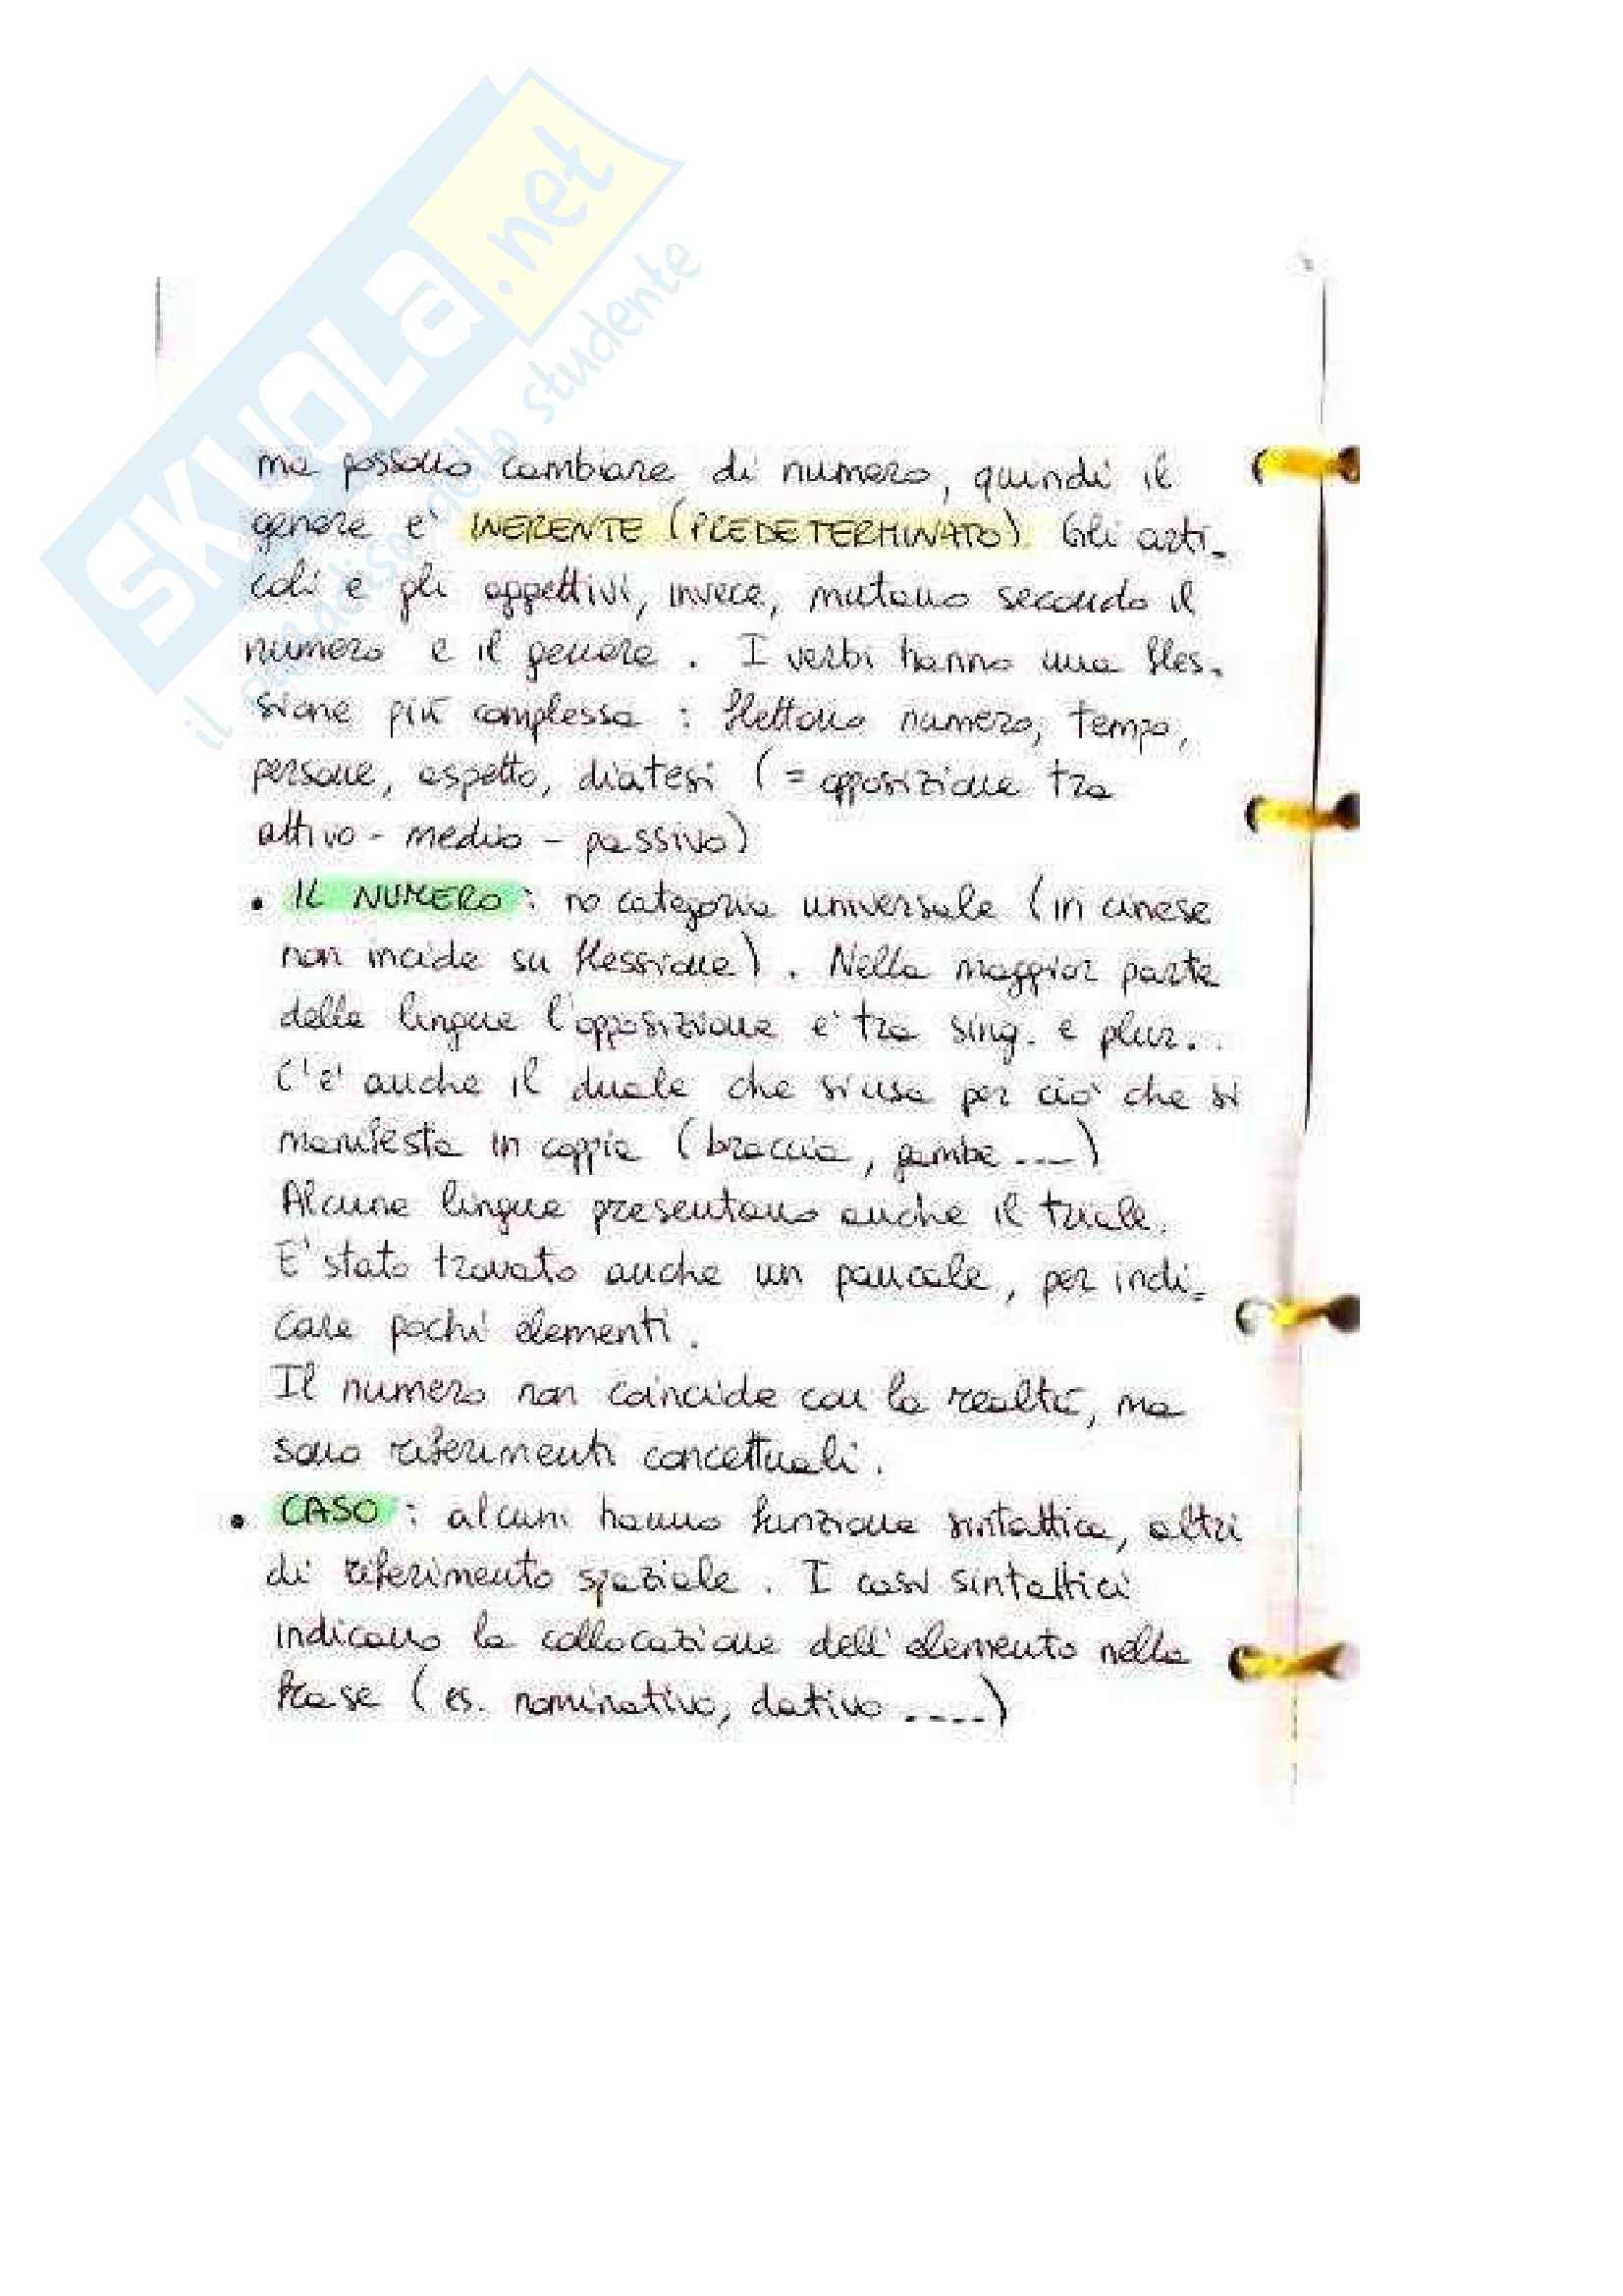 SKUOLA.net
il paradiso dello studente
ma possono cambiare di numero, quindi il
genere e' INERENTE (PREDETERMINATO). Gli arti-
coli e gli aggettivi, invece, mutano secondo il
numero e il genere. I verbi hanno una fles-
sione più complessa: flettono numero, tempo,
persone, aspetto, diatesi (= opposizione tra
attivo - medio - passivo)
• IL NUMERO: no categoria universale (in cinese
non incide su flessione). Nella maggior parte
delle lingue l'opposizione e' tra sing. e plur..
C'e' anche il duale che si usa per ciò che si
manifesta in coppia (braccia, gambe ...)
Alcune lingue presentano anche il triale.
E' stato trovato anche un paucale, per indi-
care pochi elementi.
Il numero non coincide con la realtà, ma
sono riferimenti concettuali.
• CASO: alcuni hanno funzione sintattica, altri
di riferimento spaziale. I casi sintattici
indicano la collocazione dell'elemento nella
frase (es. nominativo, dativo ....)